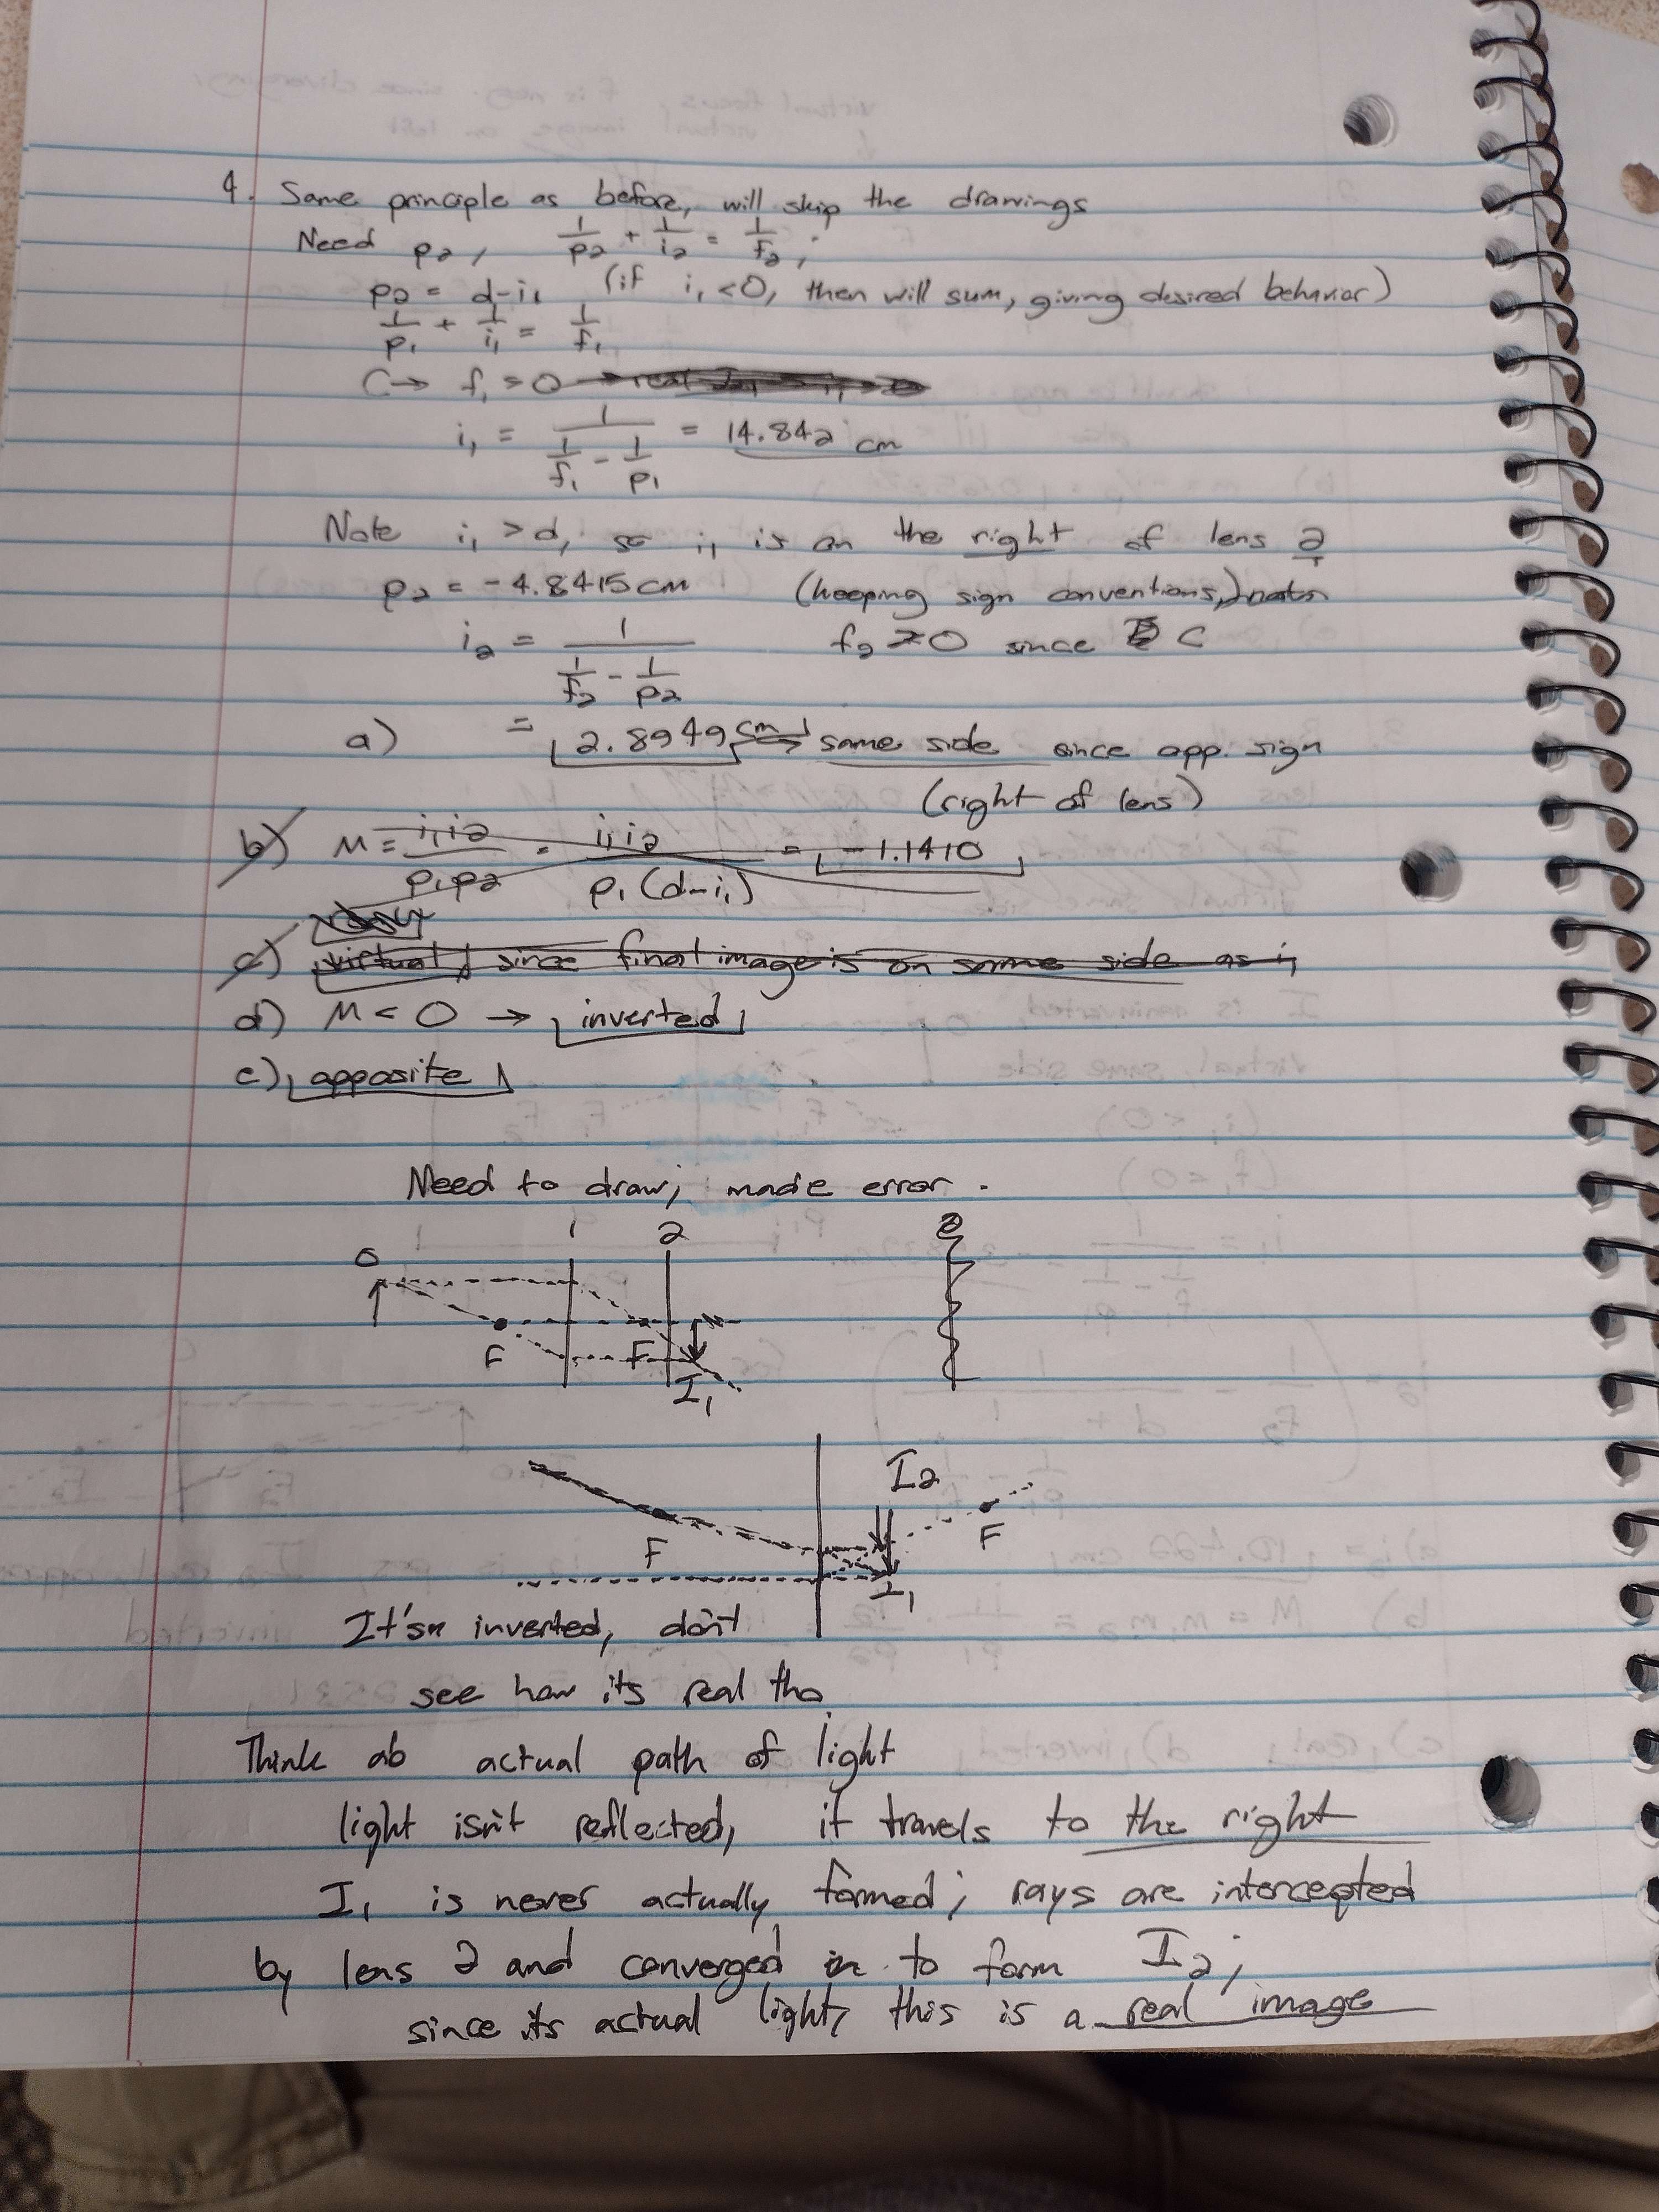 4. Same principle as before, will skip the drawings
Need p2, 1/p2 + 1/i2 = 1/f2;
p2 = d-i1 (if i1 <0, then will sum, giving desired behavior)
1/p1 + 1/i1 = 1/f1
C → f1 > 0
i1 = 1/(1/f1 - 1/p1) = 14.842 cm
Note i1 > d, so i1 is on the right of lens 2
p2 = -4.8415 cm (keeping sign conventions,)
i2 = 1/(1/f2 - 1/p2) f2 > 0 since C
a) = 2.8949 cm → same side since opp. sign
(right of lens)
b) M = i1i2/p1p2 = i1i2/p1(d-i1) = -1.1410
c) virtual, since final image is on same side as i1
d) M < 0 → inverted
e) opposite
Need to draw; made error.
1 2 2
O
F F
I1
I2
F F
I1
It's inverted, don't
see how its real tho
Think ab actual path of light
light isn't reflected, it travels to the right
I1 is never actually formed; rays are intercepted
by lens 2 and converged in to form I2;
since its actual light, this is a real image